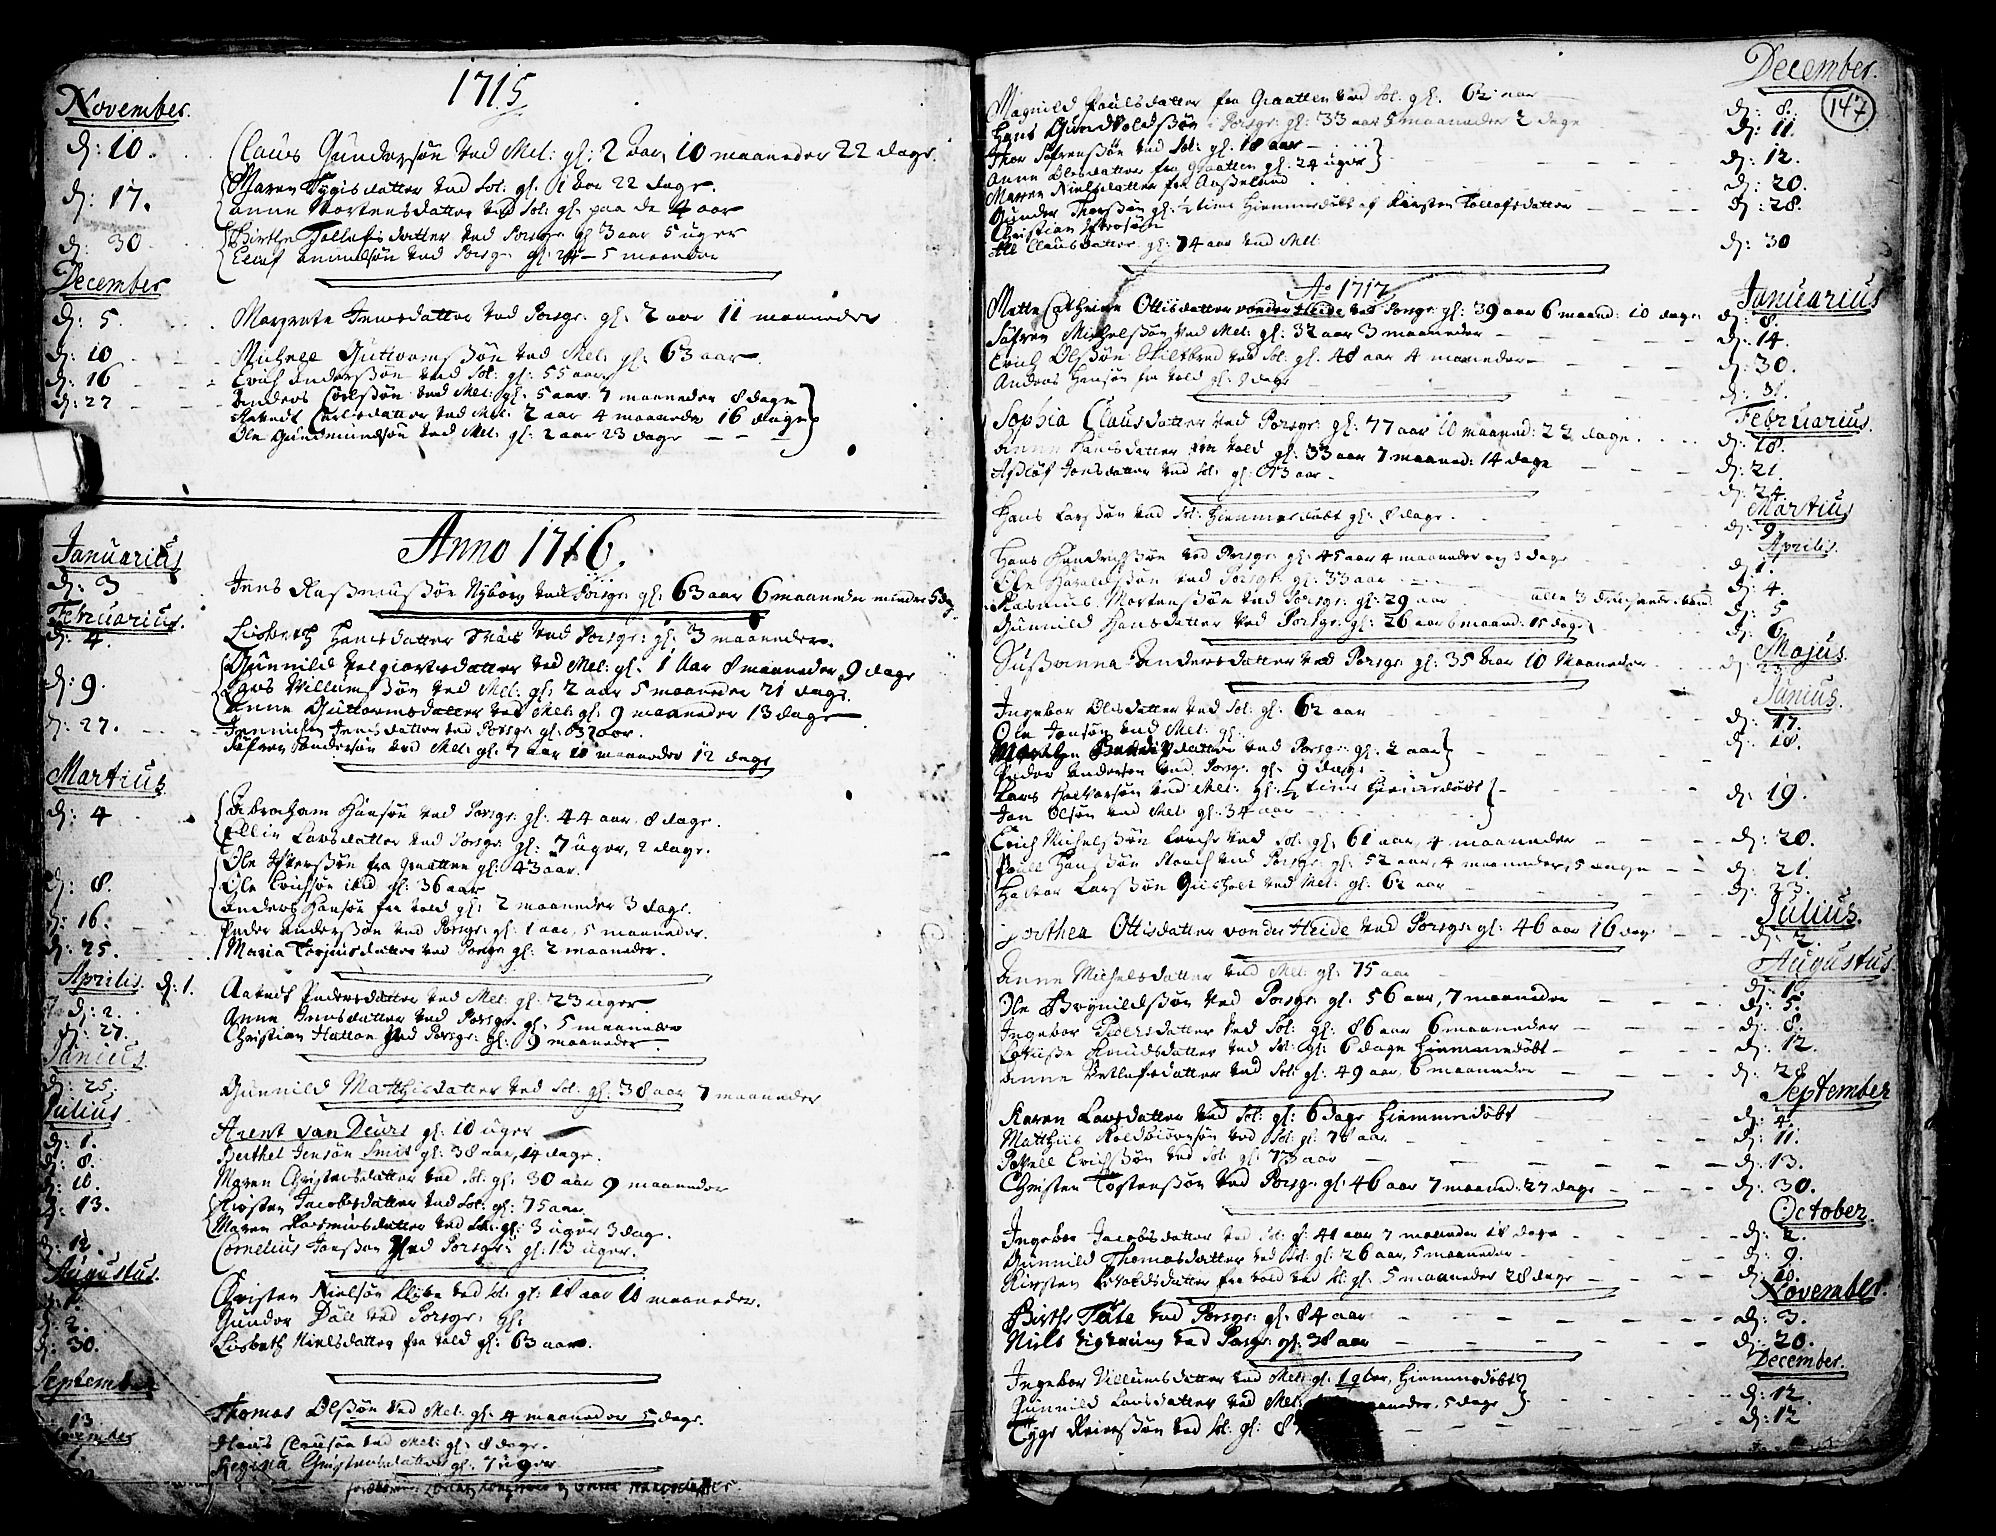 1715
November.
d: 10. Claus Gundersøn ved Mel: gl: 2 Aar, 10 maaneder 22 dage.
d: 17. Maren Tygisdatter ved Sol: gl: 1 Aar 22 dage.
Anne Mortensdatter ved Sol: gl: paa de 4 aar
d: 30 Birthe Tollefsdatter ved Porsgr: gl 3 aar 5 uger
Amundsøn ved Porsgr: gl: 5 maaneder
December
d: 5. Margrete Jensdatter ved Porsgr: gl: 2 aar 11 maaneder
d: 10 Michell Guttormssøn ved Mel: gl: 63 aar
d: 16 Erich Anderssøn ved Sol: gl: 55 aar
d: 27 Anders Carlssøn ved Mel: gl: 5 aar 7 maaneder 8 dage
Carlsdatter ved Mel: 2 aar 4 maaneder 16 dage
Ole Gudmundsøn ved Mel: gl: 2 aar 23 dage
Anno 1716.
Januarius
d: 3 Jens Rasmussøn Nyborg ved Porsgr: gl: 63 aar 6 maaneder
Februarius.
d: 4. Lisbeth Hansdatter ved Porsgr: gl: 3 maaneder.
d: 9. Gunnild datter ved Mel: gl: 1 Aar 8 maaneder 9 dage
Lars Villumssøn ved Mel: gl: 2 aar 5 maaneder 21 dage.
Anne Guttormsdatter ved Mel: gl: 9 maaneder 13 dage
d: 27. Jensdatter ved Porsgr: gl:
Søfren Andersøn ved Mel: gl: 7 Aar 10 maaneder 12 dage
Martius.
d: 4 Abraham Hansøn ved Porsgr: gl: 44 aar 8 dage.
Ellin Larsdatter ved Porsgr: gl: 7 uger, 2 dage.
Ole fra Graatten gl: 43 aar.
d: 8. Ole Erichsøn ibid gl: 36 aar
Anders Hansøn fra Vold gl: 2 maaneder 3 dage.
d: 16. Peder Andersøn ved Porsgr: gl: 1 aar 5 maaneder.
d: 25. Maria Torjusdatter ved Porsgr: gl: 2 maaneder.
Aprilis. d: 1. Pedersdatter ved Mel: gl: 23 uger
d: 2. Anne Jensdatter ved Porsgr: gl: 5 maaneder
d: 27. Christian Hatton ved Porsgr: gl: 9 maaneder
Junius.
d: 25. Gunnild Matthisdatter ved Sol: gl: 38 aar 7 maaneder
Julius
d: 1. Arent van Deurs gl: 10 uger
d: 8. Berthel Jensøn Smit gl: 38 aar, 14 dage.
d: 10. Maren Christensdatter ved Sol: gl: 30 aar 9 maaneder
d: 13. Kirsten Jacobsdatter ved Sol: gl: 75 aar
Maren Rasmusdatter ved gl: 3 uger 3 dage.
d: 12. Cornelius Jonssøn ved Porsgr: gl: 13 uger.
Augustus.
d: 1. Christen Nielsøn ved Sol: gl: 18 aar 10 maaneder.
d: 2. Gunder Dall ved Porsgr: gl:
d: 30. Lisbeth Nielsdatter fra Vold gl: 63 aar.
September
13 Thomas Olssøn ved Mel: gl: 4 maaneder 5 dage.
November
1. Claus Clausøn ved Mel: gl: 8 dage.
Regina Christensdatter gl: 7 uger
December. 147
Magnild Poulsdatter fra Graatten ved Sol: gl: 62 aar d: 8.
Hans Gundvoldssøn Porsgr: gl: 33 aar 5 maaneder 2 dage d: 11.
Thor Søfrenssøn ved Sol: gl: 18 aar d: 12.
Anne Olesdatter fra Graatten gl: 24 uger
Maren Nielsdatter fra d: 20.
Gunder Thorssøn gl: ½ time hiemmedøbt af Kirsten Tollefsdatter d: 28.
Christian
Clausdatter gl: 74 aar ved Mel: d: 30
Ao 1717
Januarius
Mette Cathrine Ottisdatter vonder Heide ved Porsgr: gl: 39 aar 6 maaned: 10 dage d: 8.
Søfren Michelssøn ved Mel: gl: 32 aar 3 maaneder d: 14.
Erich Olssøn ved Sol: gl: 48 aar 4 maaneder d: 30.
Andreas Hansøn fra Vold gl: 8 dage d: 31.
Februarius.
Sophia Clausdatter ved Porsgr: gl: 77 aar 10 maaned: 22 dage. d: 18.
Anne Hansdatter fra Vold gl: 33 aar 7 maaned: 14 dage d: 21
Aslof Jonsdatter ved Sol: gl: 73 aar d: 24.
Martius
Hans Larssøn ved Sol: hiemmedøbt gl: 8 dage. d: 9
Aprilis.
Hans Hendrichssøn ved Porsgr: gl: 45 aar 4 maaneder og 3 dage d: 1.
Ole Haraldssøn ved Porsgr: gl: 33 aar d: 4.
Rasmus Mortenssøn ved Porsgr: gl: 29 aar alle 3 d: 5
Gunnild Hansdatter ved Porsgr: gl: 26 aar 6 maaned: 15 dage d: 6
Majus.
Sussanna Andersdatter ved Porsgr: gl: 35 Aar 10 Maaneder d: 23.
Junius.
Ingebor Olisdatter ved Sol: gl: 62 aar d: 17.
Ole Jonsøn ved Mel: gl: d: 18.
datter ved Porsgr: gl: 2 aar
Peder Andersøn ved Porsgr: gl: 9 dage
Lars Halvorsøn ved Mel: gl: ½ time hiemmedøbt d: 19.
Jon Olsøn ved Mel: gl: 34 aar
Erich Michelssøn ved Sol: gl: 61 aar, 4 maaneder d: 20.
Powel Hanssøn ved Porsgr: gl: 52 aar, 4 maaneder, 5 dage d: 21.
Halvor Larssøn Gusholt ved Mel: gl: 62 aar d: 23.
Julius.
Dorthea Ottisdatter vonder Heide ved Porsgr: gl: 46 aar 16 dage d: 2.
Augustus
Anne Michelsdatter ved Mel: gl: 75 aar d: 1.
Ole Brynildssøn ved Porsgr: gl: 56 aar, 7 maaneder d: 5.
Ingebor Pedersdatter ved Sol: gl: 86 aar 6 maaneder d: 8.
Knudsdatter ved Sol: gl: 6 dage hiemmedøbt d: 12.
Anne Detlefsdatter ved Sol: gl: 49 aar, 6 maaneder d: 28
September
Karen Larsdatter ved Sol: gl: 6 dage hiemmedøbt d: 4.
Matthis Koldbiørnsøn ved Sol: gl: 78 aar d: 11.
Powell Erichssøn ved Sol: gl: 73 aar d: 13.
Christen Tostenssøn ved Porsgr: gl: 46 aar 7 maaned: 27 dage d: 30.
October.
Ingebor Jacobsdatter ved Sol: gl: 41 aar 7 maaneder 18 dage d: 2.
Gunnild Thomasdatter ved Sol: gl: 26 aar, 5 maaneder d: 9.
Kirsten datter fra Vold ved Sol: gl: 5 maaneder 28 dage d: 10.
November
Birthe Tate ved Porsgr: gl: 84 aar d: 3.
Niels ved Porsgr: gl: 38 aar d: 20.
December.
Ingebor Villumsdatter ved Mel: gl: hiemmedøbt d: 12.
Gunnild Larsdatter ved Mel: maaneder, 5 dage d: 12
Tyge Reinssøn ved Sol: gl: 8